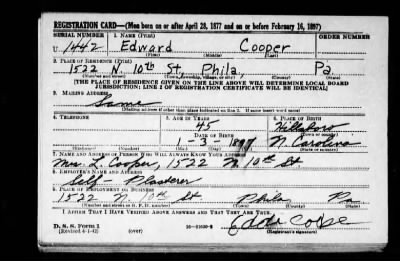 REGISTRATION CARD—(Men born on or after April 28, 1877 and on or before February 16, 1897)
SERIAL NUMBER 1. NAME (Print) ORDER NUMBER
U 1442 Edward Cooper
(First) (Middle) (Last)
2. PLACE OF RESIDENCE (Print)
1522 N. 10th St, Phila, Pa.
(Number and street) (Town, township, village, or city) (County) (State)
[THE PLACE OF RESIDENCE GIVEN ON THE LINE ABOVE WILL DETERMINE LOCAL BOARD
JURISDICTION; LINE 2 OF REGISTRATION CERTIFICATE WILL BE IDENTICAL]
3. MAILING ADDRESS
Same
[Mailing address if other than place indicated on line 2. If same insert word same]
4. TELEPHONE 5. AGE IN YEARS 6. PLACE OF BIRTH
45 Hillsboro
DATE OF BIRTH (Town or county)
1-3-1897 N Carolina
(Exchange) (Number) (Mo.) (Day) (Yr.) (State or country)
7. NAME AND ADDRESS OF PERSON WHO WILL ALWAYS KNOW YOUR ADDRESS
Mrs. L. Cooper, 1522 N. 10th St
8. EMPLOYER'S NAME AND ADDRESS
Self- Plasterer
9. PLACE OF EMPLOYMENT OR BUSINESS
1522 N. 10th St Phila Pa
(Number and street or R. F. D. number) (Town) (County) (State)
I AFFIRM THAT I HAVE VERIFIED ABOVE ANSWERS AND THAT THEY ARE TRUE.
D. S. S. Form 1
(Revised 4-1-42) (over) (Registrant's signature)